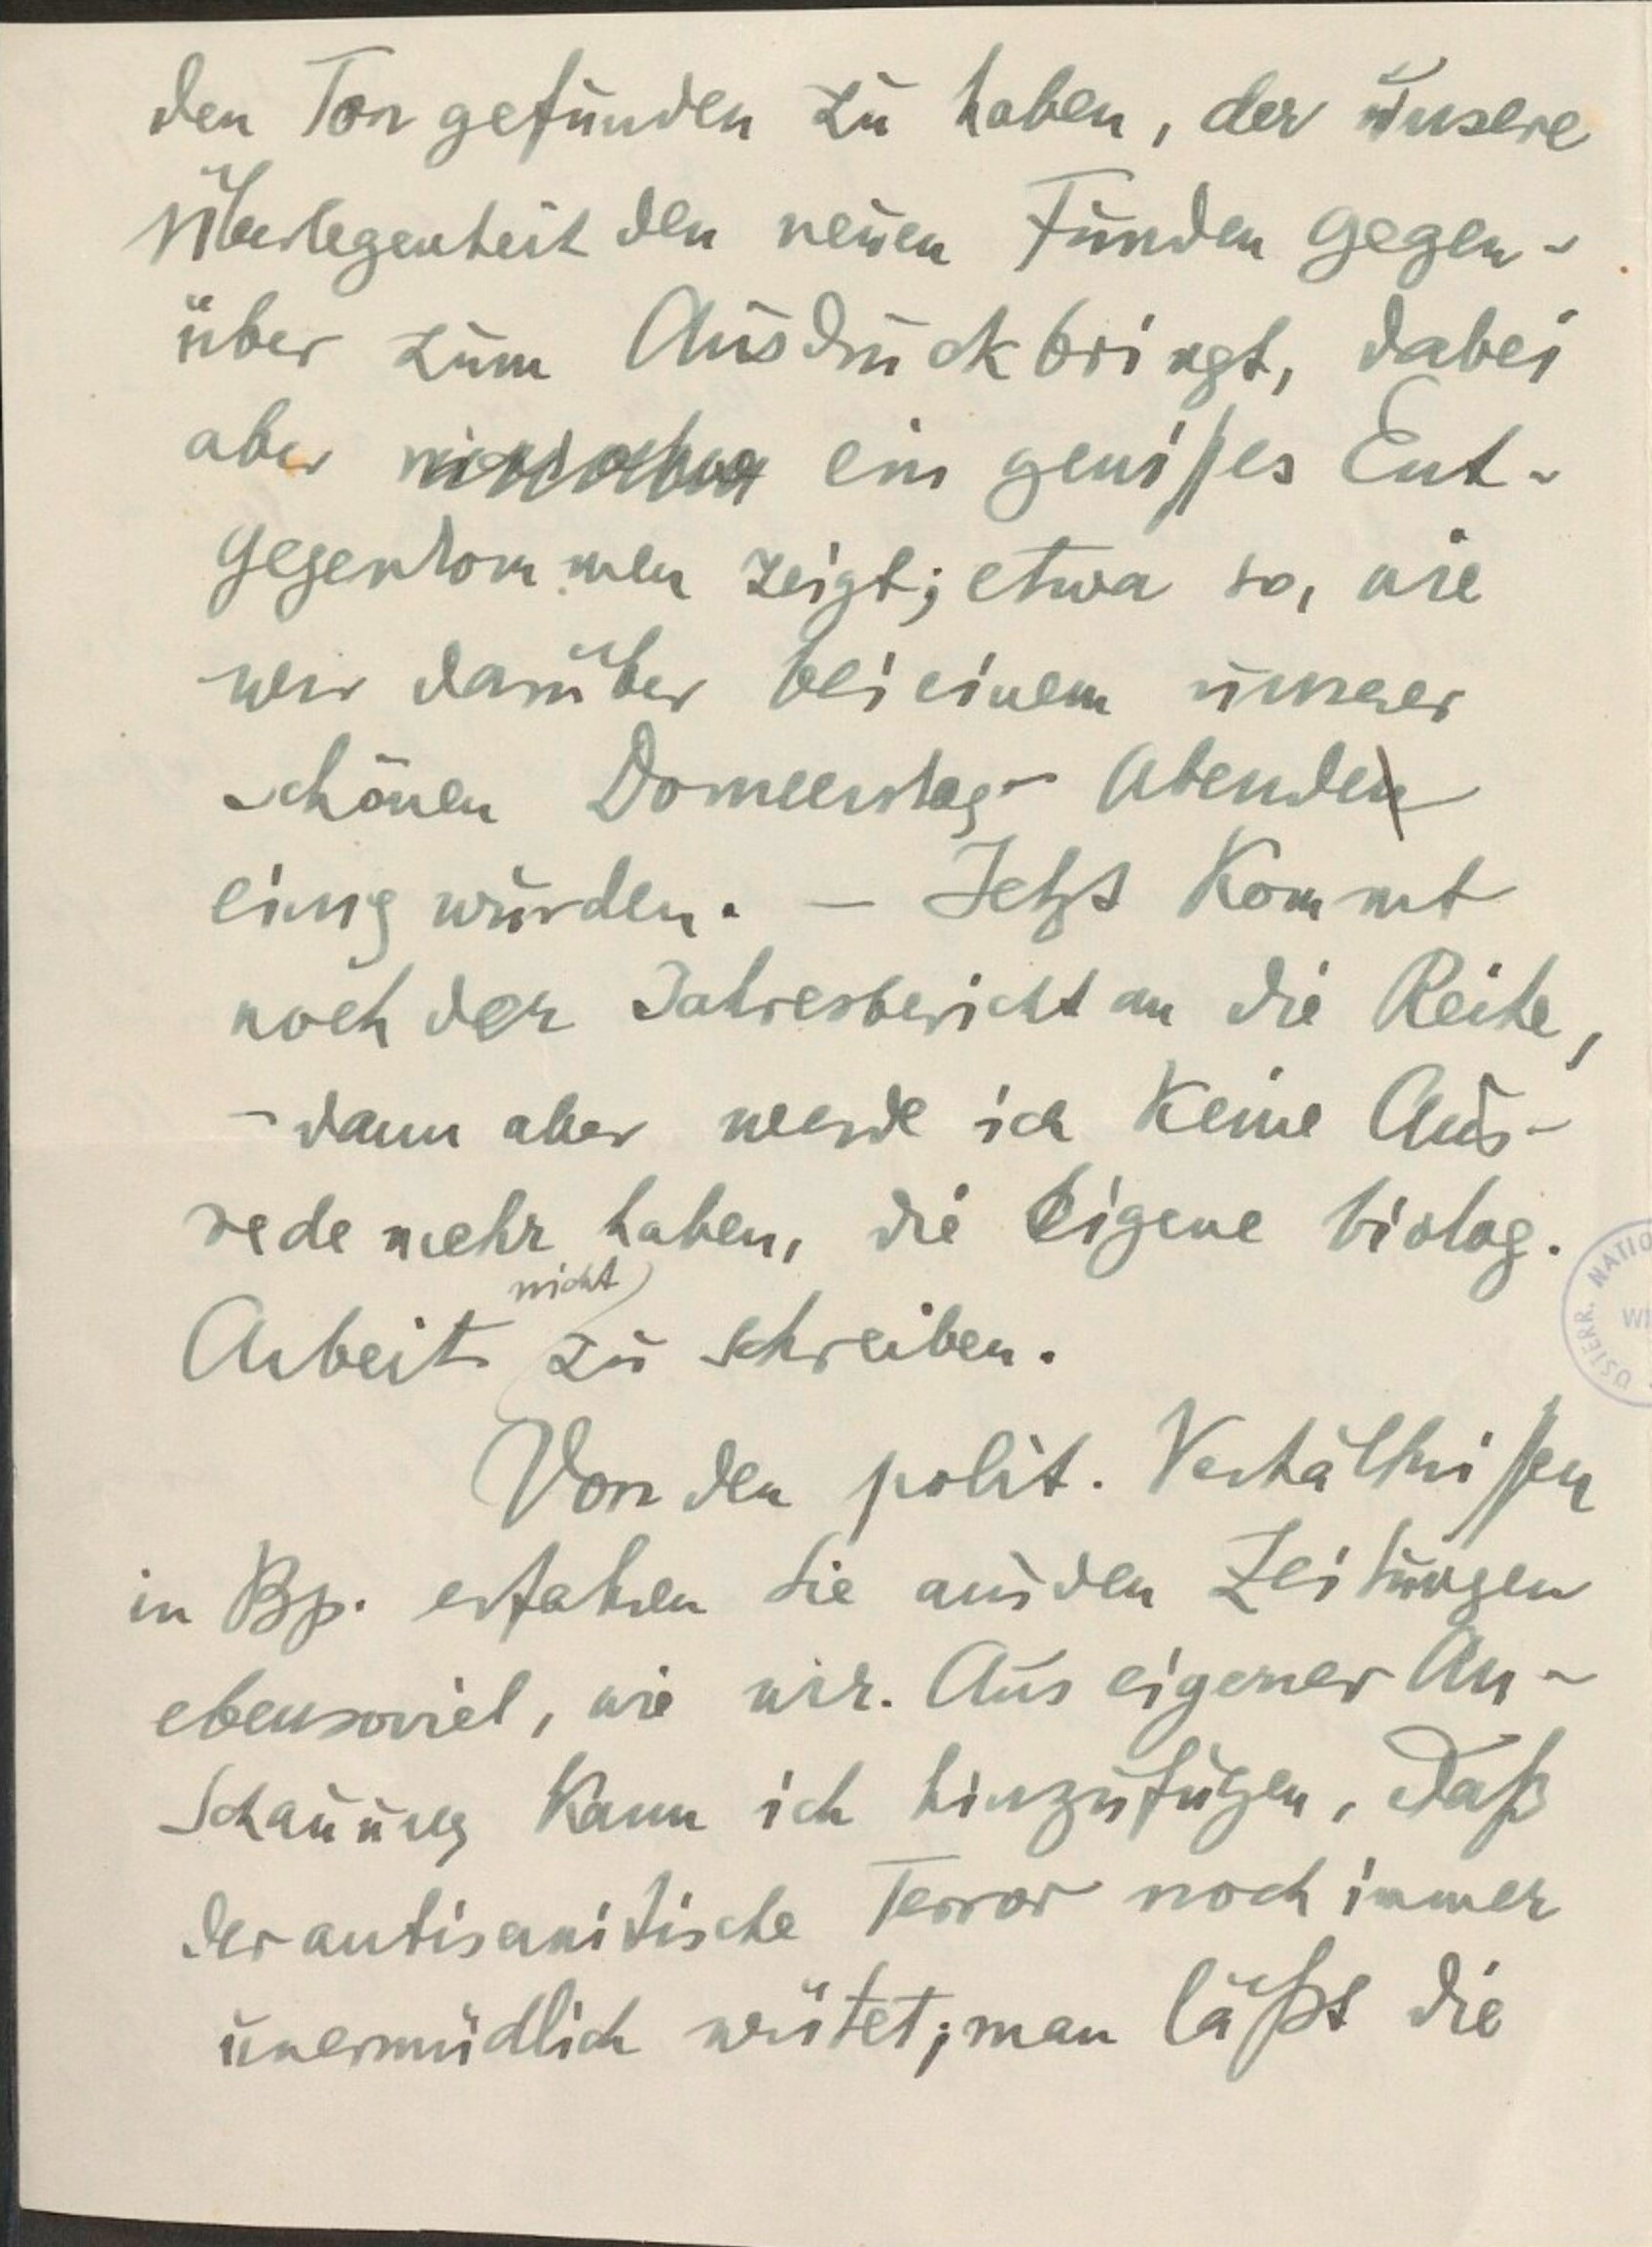 den Ton gefunden zu haben, der unsere
Überlegenheit den neuen Funden gegen-
über zum Ausdruck bringt, dabei
aber ein gewisses Ent-
gegenkommen zeigt; etwa so, wie
wir darüber bei einem unserer
schönen Donnerstag- Abende
einig wurden. — Jetzt kommt
noch der Jahresbericht an die Reihe,
- dann aber werde ich keine Aus-
rede mehr haben, die eigene biolog.
Arbeit nicht zu schreiben.
Von den polit. Verhältnissen
in Bp. erfahren Sie aus den Zeitungen
ebensoviel, wie wir. Aus eigener An-
schauung kann ich hinzufügen, daß
der antisemitische Terror noch immer
unermüdlich wütet; man läßt die
ÖSTERR. NATIO
WI